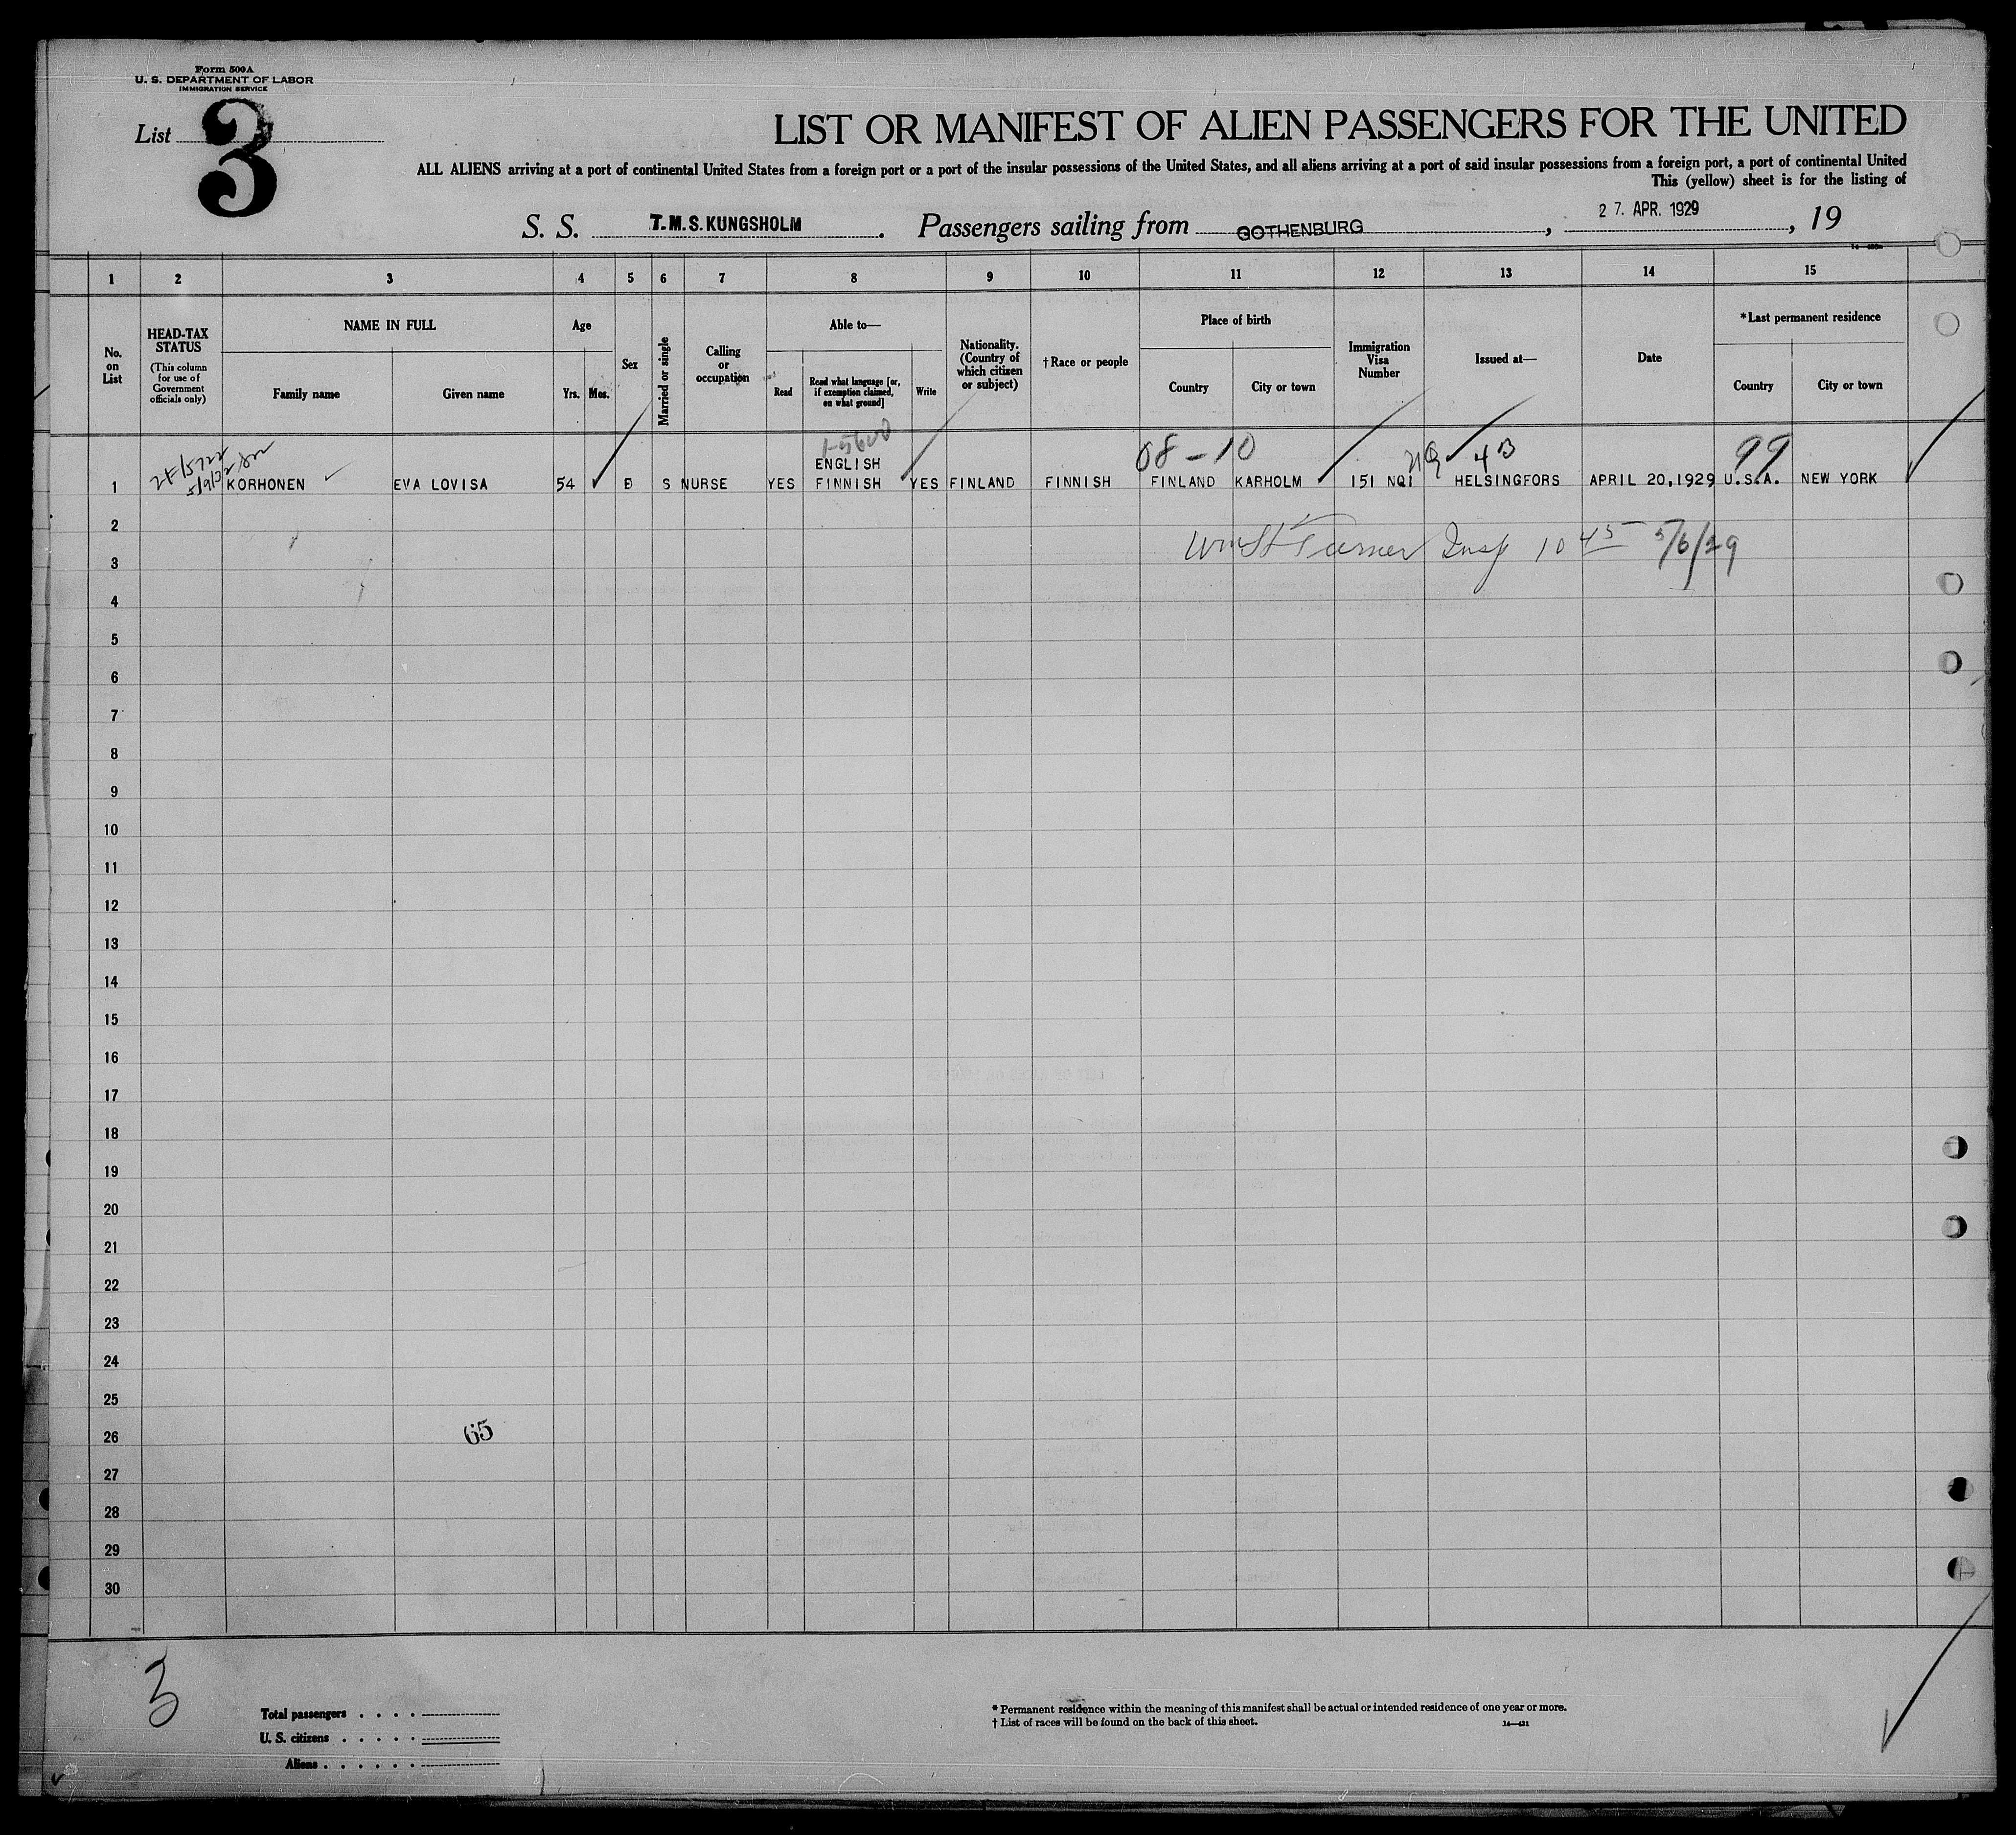 Form 500A
U. S. DEPARTMENT OF LABOR
IMMIGRATION SERVICE
List 3
LIST OR MANIFEST OF ALIEN PASSENGERS FOR THE UNITED
ALL ALIENS arriving at a port of continental United States from a foreign port or a port of the insular possessions of the United States, and all aliens arriving at a port of said insular possessions from a foreign port, a port of continental United
This (yellow) sheet is for the listing of
S. S. T.M.S. KUNGSHOLM. Passengers sailing from GOTHENBURG, 27. APR. 1929, 19
1 2 3 4 5 6 7 8 9 10 11 12 13 14 15
No. on List
HEAD-TAX STATUS
(This column for use of Government officials only)
NAME IN FULL
Family name
Given name
Age
Yrs. Mos.
Sex
Married or single
Calling or occupation
Able to—
Read
Read what language [or, if exemption claimed, on what ground]
Write
Nationality. (Country of which citizen or subject)
†Race or people
Place of birth
Country
City or town
Immigration Visa Number
Issued at—
Date
*Last permanent residence
Country
City or town
08-10 99
ENGLISH
1 KORHONEN EVA LOVISA 54 S NURSE YES FINNISH YES FINLAND FINNISH FINLAND KARHOLM 151 NQI HELSINGFORS APRIL 20,1929 U.S.A. NEW YORK
2
Turner Insp 10 45 5/6/29
3
4
5
6
7
8
9
10
11
12
13
14
15
16
17
18
19
20
21
22
23
24
25
65
26
27
28
29
30
3
Total passengers . . . .
U. S. citizens . . . . .
Aliens . . . . . .
* Permanent residence within the meaning of this manifest shall be actual or intended residence of one year or more.
† List of races will be found on the back of this sheet.
14—431